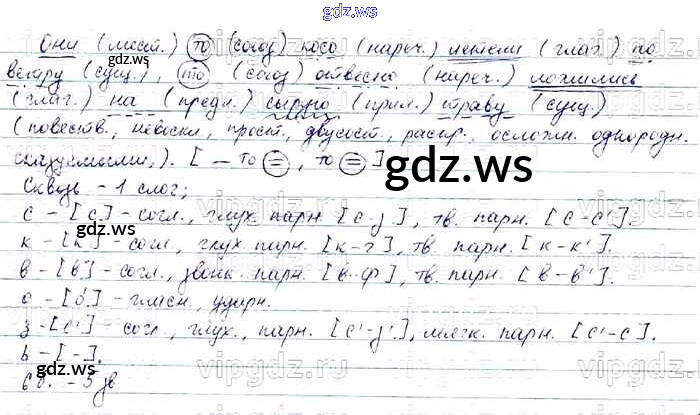 gdz.ws
Они (мест.) то (союз) косо (нареч.) летели (глаг.) по
ветру (сущ.), то (союз) отвесно (нареч.) ложились
(глаг.) на (предл.) сырую (прил.) траву (сущ.)
(повеств., невоскл., прост., двусост., распр., осложн. однородн.
сказуемыми,). [ – то =, то = ]
gdz.ws
Сквозь – 1 слог;
с – [с] – согл., глух. парн. [с-з], тв. парн. [с-с'].
к – [к] – согл., глух. парн. [к-г], тв. парн. [к-к'].
в – [в] – согл., звонк. парн. [в-ф], тв. парн. [в-в'].
о – [о́] – гласн., ударн.
з – [с'] – согл., глух., парн. [с'-з'], мягк. парн. [с'-с].
ь – [-].
6 б. – 5 зв
gdz.ws
gdz.ws
gdz.ws
vipgdz.ws